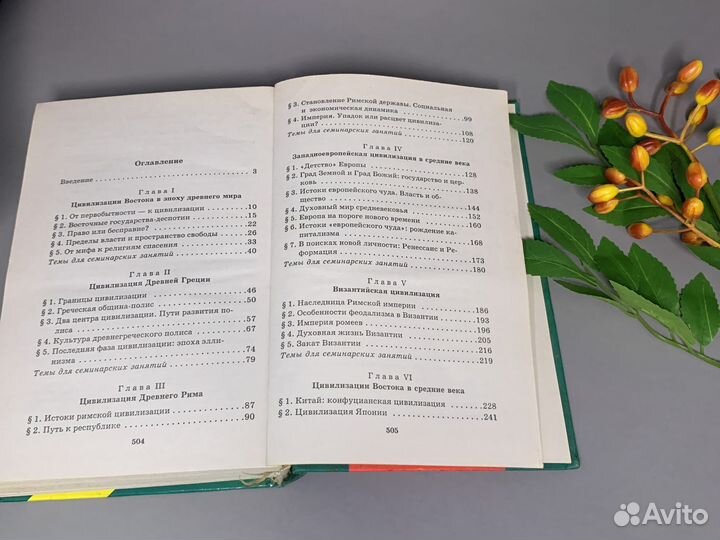 Оглавление
Введение . . . . . . . . . . 3
Глава I
Цивилизации Востока в эпоху древнего мира
§ 1. От первобытности — к цивилизации . . . . . . . 10
§ 2. Восточные государства-деспотии . . . . . . . 15
§ 3. Право или бесправие? . . . . . . . 22
§ 4. Пределы власти и пространство свободы . . . . . . . 26
§ 5. От мифа к религиям спасения . . . . . . . 33
Темы для семинарских занятий . . . . . . . 40
Глава II
Цивилизация Древней Греции
§ 1. Границы цивилизации . . . . . . . 46
§ 2. Греческая община-полис . . . . . . . 50
§ 3. Два центра цивилизации. Пути развития по-
лиса . . . . . . . 57
§ 4. Культура древнегреческого полиса . . . . . . . 67
§ 5. Последняя фаза цивилизации: эпоха элли-
низма . . . . . . . 74
Темы для семинарских занятий . . . . . . . 79
Глава III
Цивилизация Древнего Рима
§ 1. Истоки римской цивилизации . . . . . . . 87
§ 2. Путь к республике . . . . . . . 90
504
§ 3. Становление Римской державы. Социальная
и экономическая динамика . . . . . . . 99
§ 4. Империя. Упадок или расцвет цивилиза-
ции? . . . . . . . 108
Темы для семинарских занятий . . . . . . . 120
Глава IV
Западноевропейская цивилизация в средние века
§ 1. «Детство» Европы . . . . . . . 128
§ 2. Град Земной и Град Божий: государство и цер-
ковь . . . . . . . 138
§ 3. Истоки европейского чуда. Власть и об-
щество . . . . . . . 144
§ 4. Духовный мир средневековья . . . . . . . 152
§ 5. Европа на пороге нового времени . . . . . . . 160
§ 6. Истоки «европейского чуда»: рождение ка-
питализма . . . . . . . 168
§ 7. В поисках новой личности: Ренессанс и Ре-
формация . . . . . . . 173
Темы для семинарских занятий . . . . . . . 180
Глава V
Византийская цивилизация
§ 1. Наследница Римской империи . . . . . . . 186
§ 2. Особенности феодализма в Византии . . . . . . . 193
§ 3. Империя ромеев . . . . . . . 196
§ 4. Духовная жизнь Византии . . . . . . . 205
§ 5. Закат Византии . . . . . . . 216
Темы для семинарских занятий . . . . . . . 219
Глава VI
Цивилизации Востока в средние века
§ 1. Китай: конфуцианская цивилизация . . . . . . . 228
§ 2. Цивилизация Японии . . . . . . . 241
505
Avito